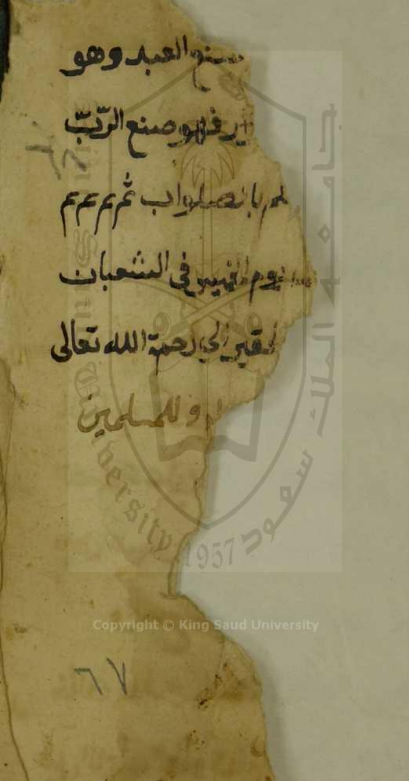 صنع العبد وهو
فهو صنع الربّ
بالصواب تم م م م
يوم الخميس فى الشعبان
الحقير الى رحمة الله تعالى
وللمسلمين
جامعة الملك سعود
University
1957
Copyright © King Saud University
٦٧